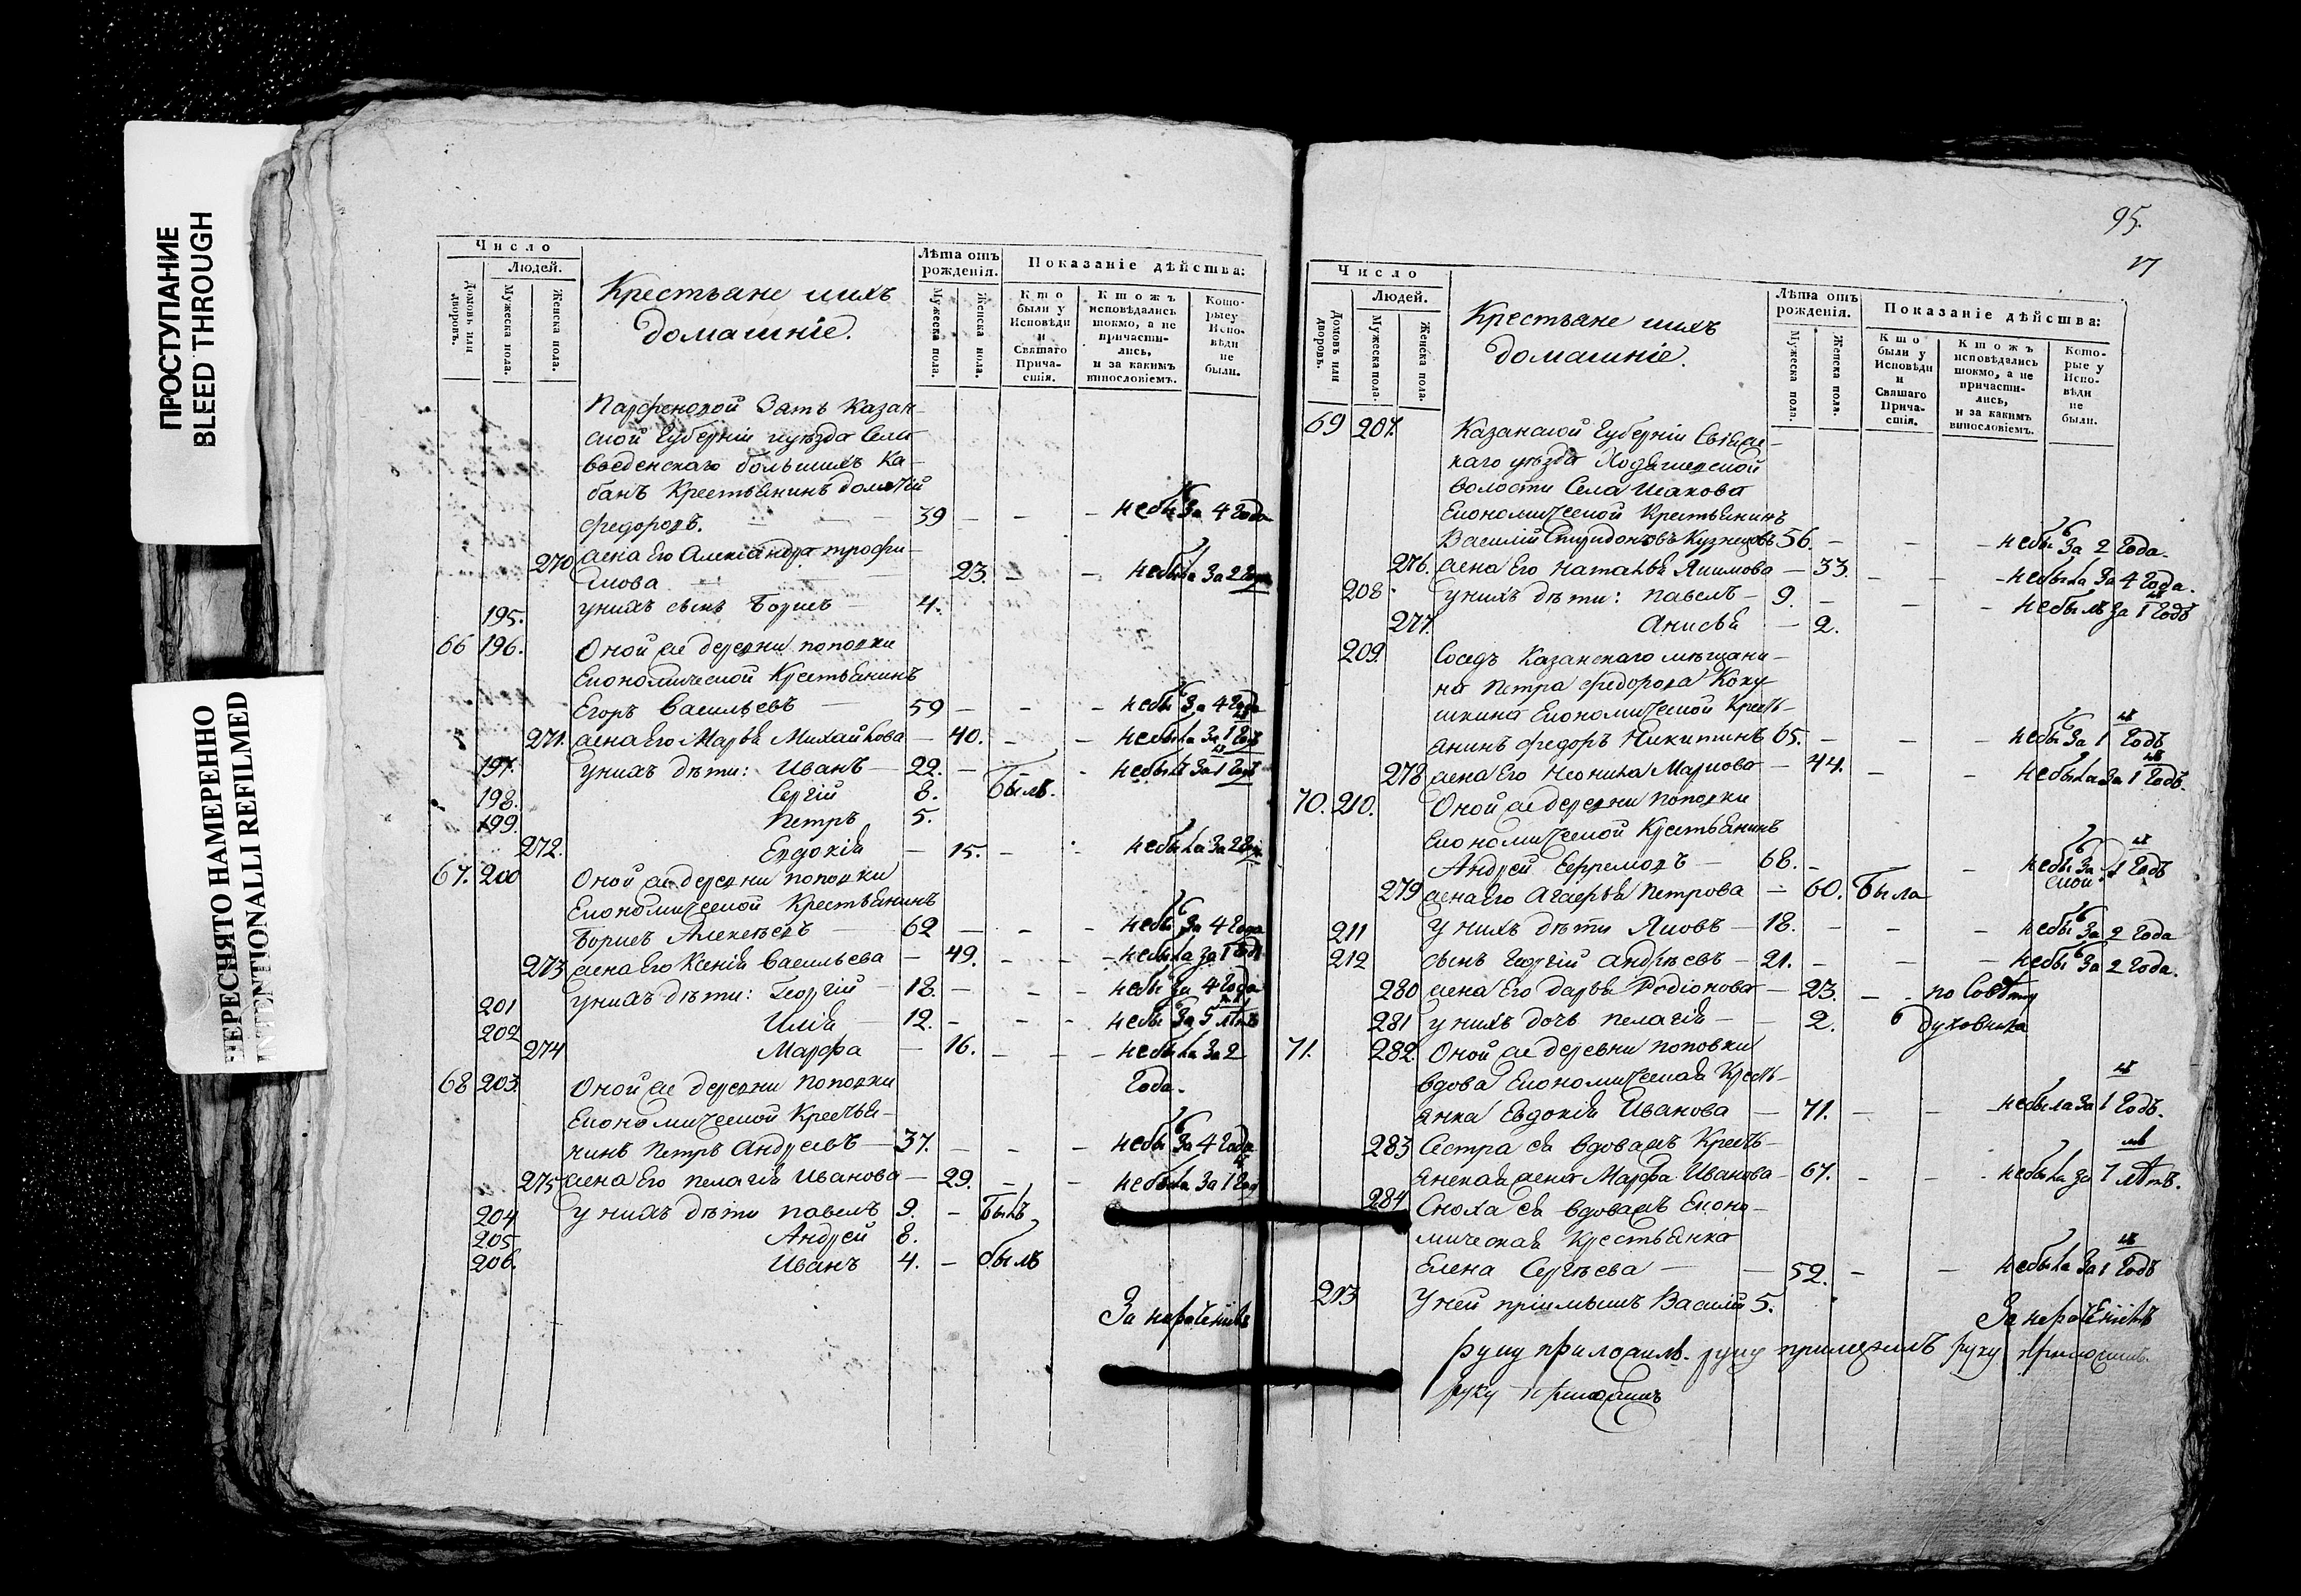 ПРОСТУПАНИЕ
BLEED THROUGH
ПЕРЕСНЯТО НАМЕРЕННО
INTENTIONALLI REFILMED
Число
Людей.
Домовъ или дворовъ.
Мужеска пола.
Женска пола.
Крестьяне ихъ
домашніе.
Лѣта отъ рожденія.
Мужеска пола.
Женска пола.
Показаніе дѣйства:
Кто были у Исповѣди и Святаго Причастія.
Ктожъ исповѣдались токмо, а не причастились, и за какимъ винословіемъ.
Которые у Исповѣди не были.
Зять Казан-
ской Губерніи уѣзда Села
введенскаго большихъ Ка-
банъ Крестьянинъ
федоровъ. 39 небы За 4 Года
270 жена Его Александра трофи-
мова 23. небыла За 2 Года
195. у нихъ сынъ Борисъ 4.
66 196. Оной же деревни поповки
Економической Крестьянинъ
Егоръ Васильевъ 59 небы За 4 Года
271. жена Его Марья Михайлова 40. небыла За 1 Годъ
197. у нихъ дѣти: Иванъ 22. небылъ За 1 Годъ
198. Сергій 8. Былъ.
199. Петръ 5.
272. Евдокія 15. небыла За 2 Года
67. 200 Оной же деревни поповки
Економической Крестьянинъ
Борисъ Алексѣевъ 62 небы За 4 Года
273 жена Его Ксенія Васильева 49. небыла За 1 Годъ
201 у нихъ дѣти: Георгій 18. небы За 4 Года
202 Илія 12. небы За 5 лѣтъ
274 Марфа 16. небыла За 2
Года.
68 203. Оной же деревни поповки
Економической Крестья-
нинъ Петръ Андреевъ 37. небы За 4 Года
275 жена Его Пелагія Иванова 29. небыла За 1 Год
204 у нихъ дѣти Павелъ 9. Былъ
205 Андрей 8.
206. Иванъ 4. былъ
За нераченіемъ
95.
17
Число
Людей.
Домовъ или дворовъ.
Мужеска пола.
Женска пола.
Крестьяне ихъ
домашніе.
Лѣта отъ рожденія.
Мужеска пола.
Женска пола.
Показаніе дѣйства:
Кто были у Исповѣди и Святаго Причастія.
Ктожъ исповѣдались токмо, а не причастились, и за какимъ винословіемъ.
Которые у Исповѣди не были.
69 207. Казанской Губерніи Свіяж-
каго уѣзда
волости Села Исакова
Економической Крестьянинъ
Василій Спиридоновъ Кузнецовъ 56. небы За 2 Года.
276. жена Его Наталья Якимова 33. небыла За 4 Года.
208. у нихъ дѣти: Павелъ 9. небылъ За 1 Годъ
277. Анисья 2.
209. Соседъ Казанскаго мѣщани-
на Петра федорова Коку-
шкина Економической Кресть-
янинъ федоръ Никитинъ 65. небы За 1 Годъ
278 жена Его Неонила Маркова 44. небыла За 1 Годъ.
70. 210. Оной же деревни поповки
Економической Крестьянинъ
Андрей Ефремовъ 68. небы За 1 Годъ
279 жена Его Агафья Петрова 60. Была
211 У нихъ дѣти Яковъ 18. небы За 2 Года
212 сынъ Георгій Андреевъ 21. небы За 2 Года.
280 жена Его Дарья Родіонова 23. по Совѣту
281 у нихъ дочь Пелагія 2. духовника
71. 282. Оной же деревни поповки
вдова Економическая Кресть-
янка Евдокія Иванова 71. небыла За 1 Годъ.
283 Сестра ея вдова жъ Кресть-
янская жена Марфа Иванова 67. небыла За 7 лѣтъ.
284 Сноха ея вдова жъ Еконо-
мическая Крестьянка
Елена Сергѣева 52. небыла За 1 Годъ
213 У ней пріимышъ Василій 5.
За нераченіемъ
руку приложилъ. руку приложилъ руку приложилъ.
руку приложилъ